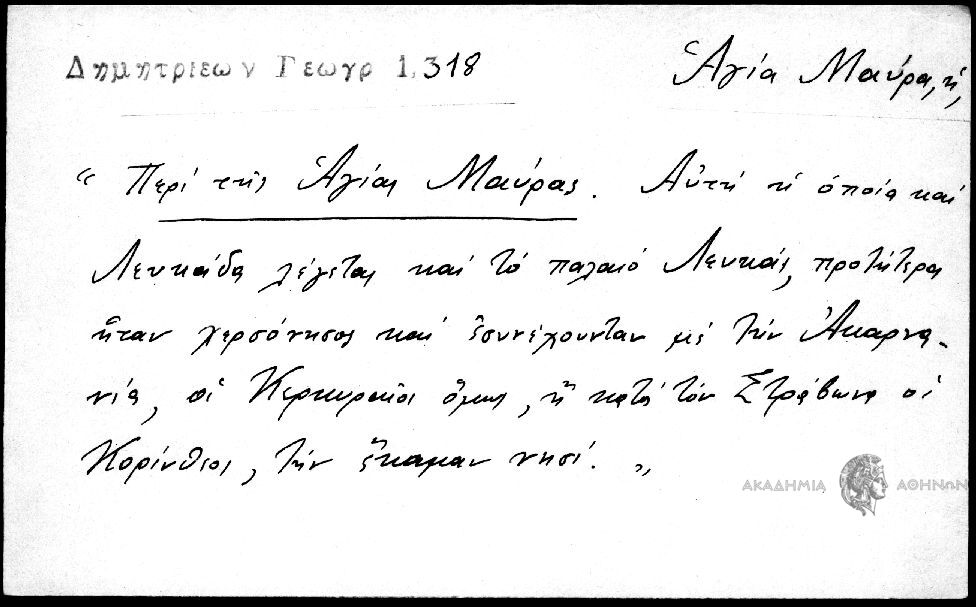 Δημητριεων Γεωγρ 1,318
Ἁγία Μαύρα, ἡ,
“ Περί τῆς Ἁγίας Μαύρας. Αὐτή ἡ ὁποία καί
Λευκάδα λέγεται καί τό παλαιό Λευκάς, προτήτερα
ἦταν χερσόνησος καί ἐσυνέχουνταν μέ τήν Ἀκαρνα-
νία, οἱ Κερκυραῖοι ὅμως, ἤ κατά τόν Στράβωνα οἱ
Κορίνθιοι, τήν ἔκαμαν νησί. „
ΑΚΑΔΗΜΙΑ ΑΘΗΝΩΝ